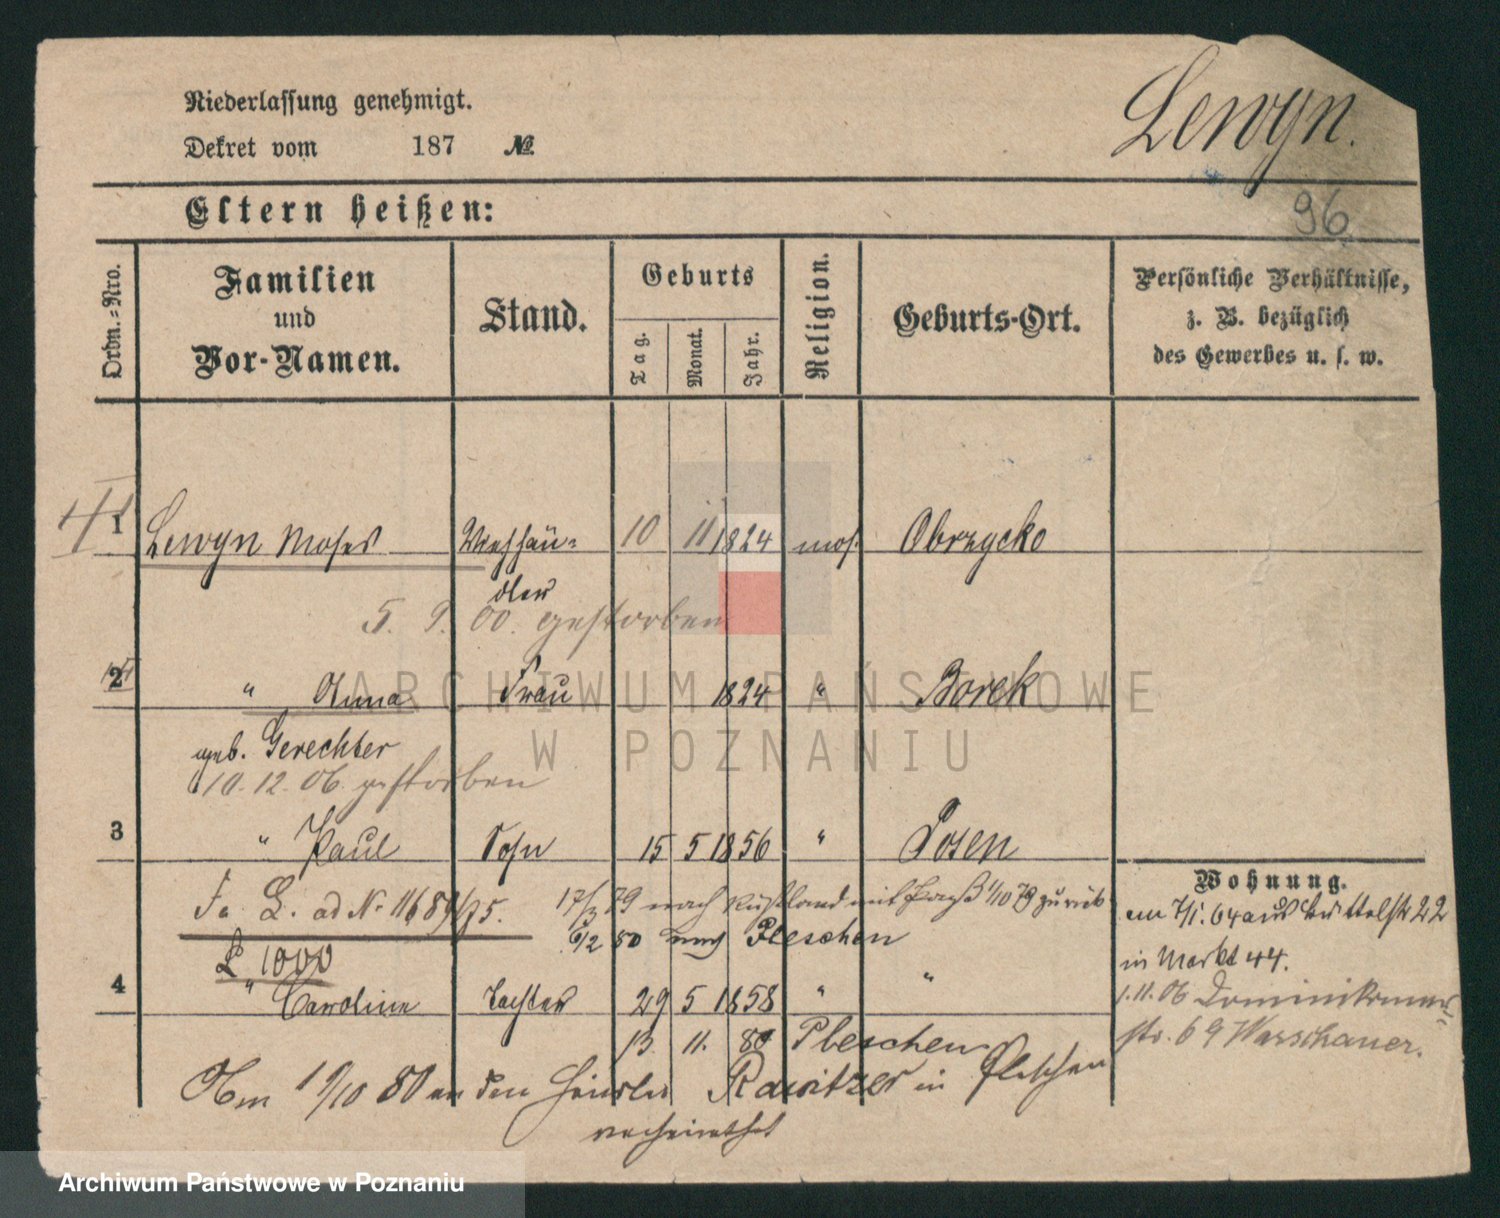 Niederlassung genehmigt.
Dekret vom 187 №
Lewyn.
Eltern heißen:
96
Ordn.-Nro.
Familien und Vor-Namen.
Stand.
Geburts
Tag.
Monat.
Jahr.
Religion.
Geburts-Ort.
Persönliche Verhältnisse,
z. B. bezüglich
des Gewerbes u. s. w.
1 Lewyn Moses Viehhän- 10 11 1824 mos. Obrzycko
dler
5. 9. 00. gestorben
2 " Anna Frau 1824 " Borek
geb. Gerechter
10. 12. 06. gestorben
3 " Paul Sohn 15 5 1856 " Posen
Fa L. ad № 11689/75. 17/3 79 nach Rußland mit 1/10 79 zurück
6/2 80 nach Pleschen
L 1000
4 " Caroline Tochter 29 5 1858 " "
13. 11. 80 Pleschen
Am 19/10 80 an den Händler Rawitzer in Pleschen
verheirathet
Wohnung.
am 7/1. 64 aus 22
in Markt 44.
1. 11. 06 Dominikaner-
str. 69 Warschauer.
ARCHIWUM PAŃSTWOWE
W POZNANIU
Archiwum Państwowe w Poznaniu